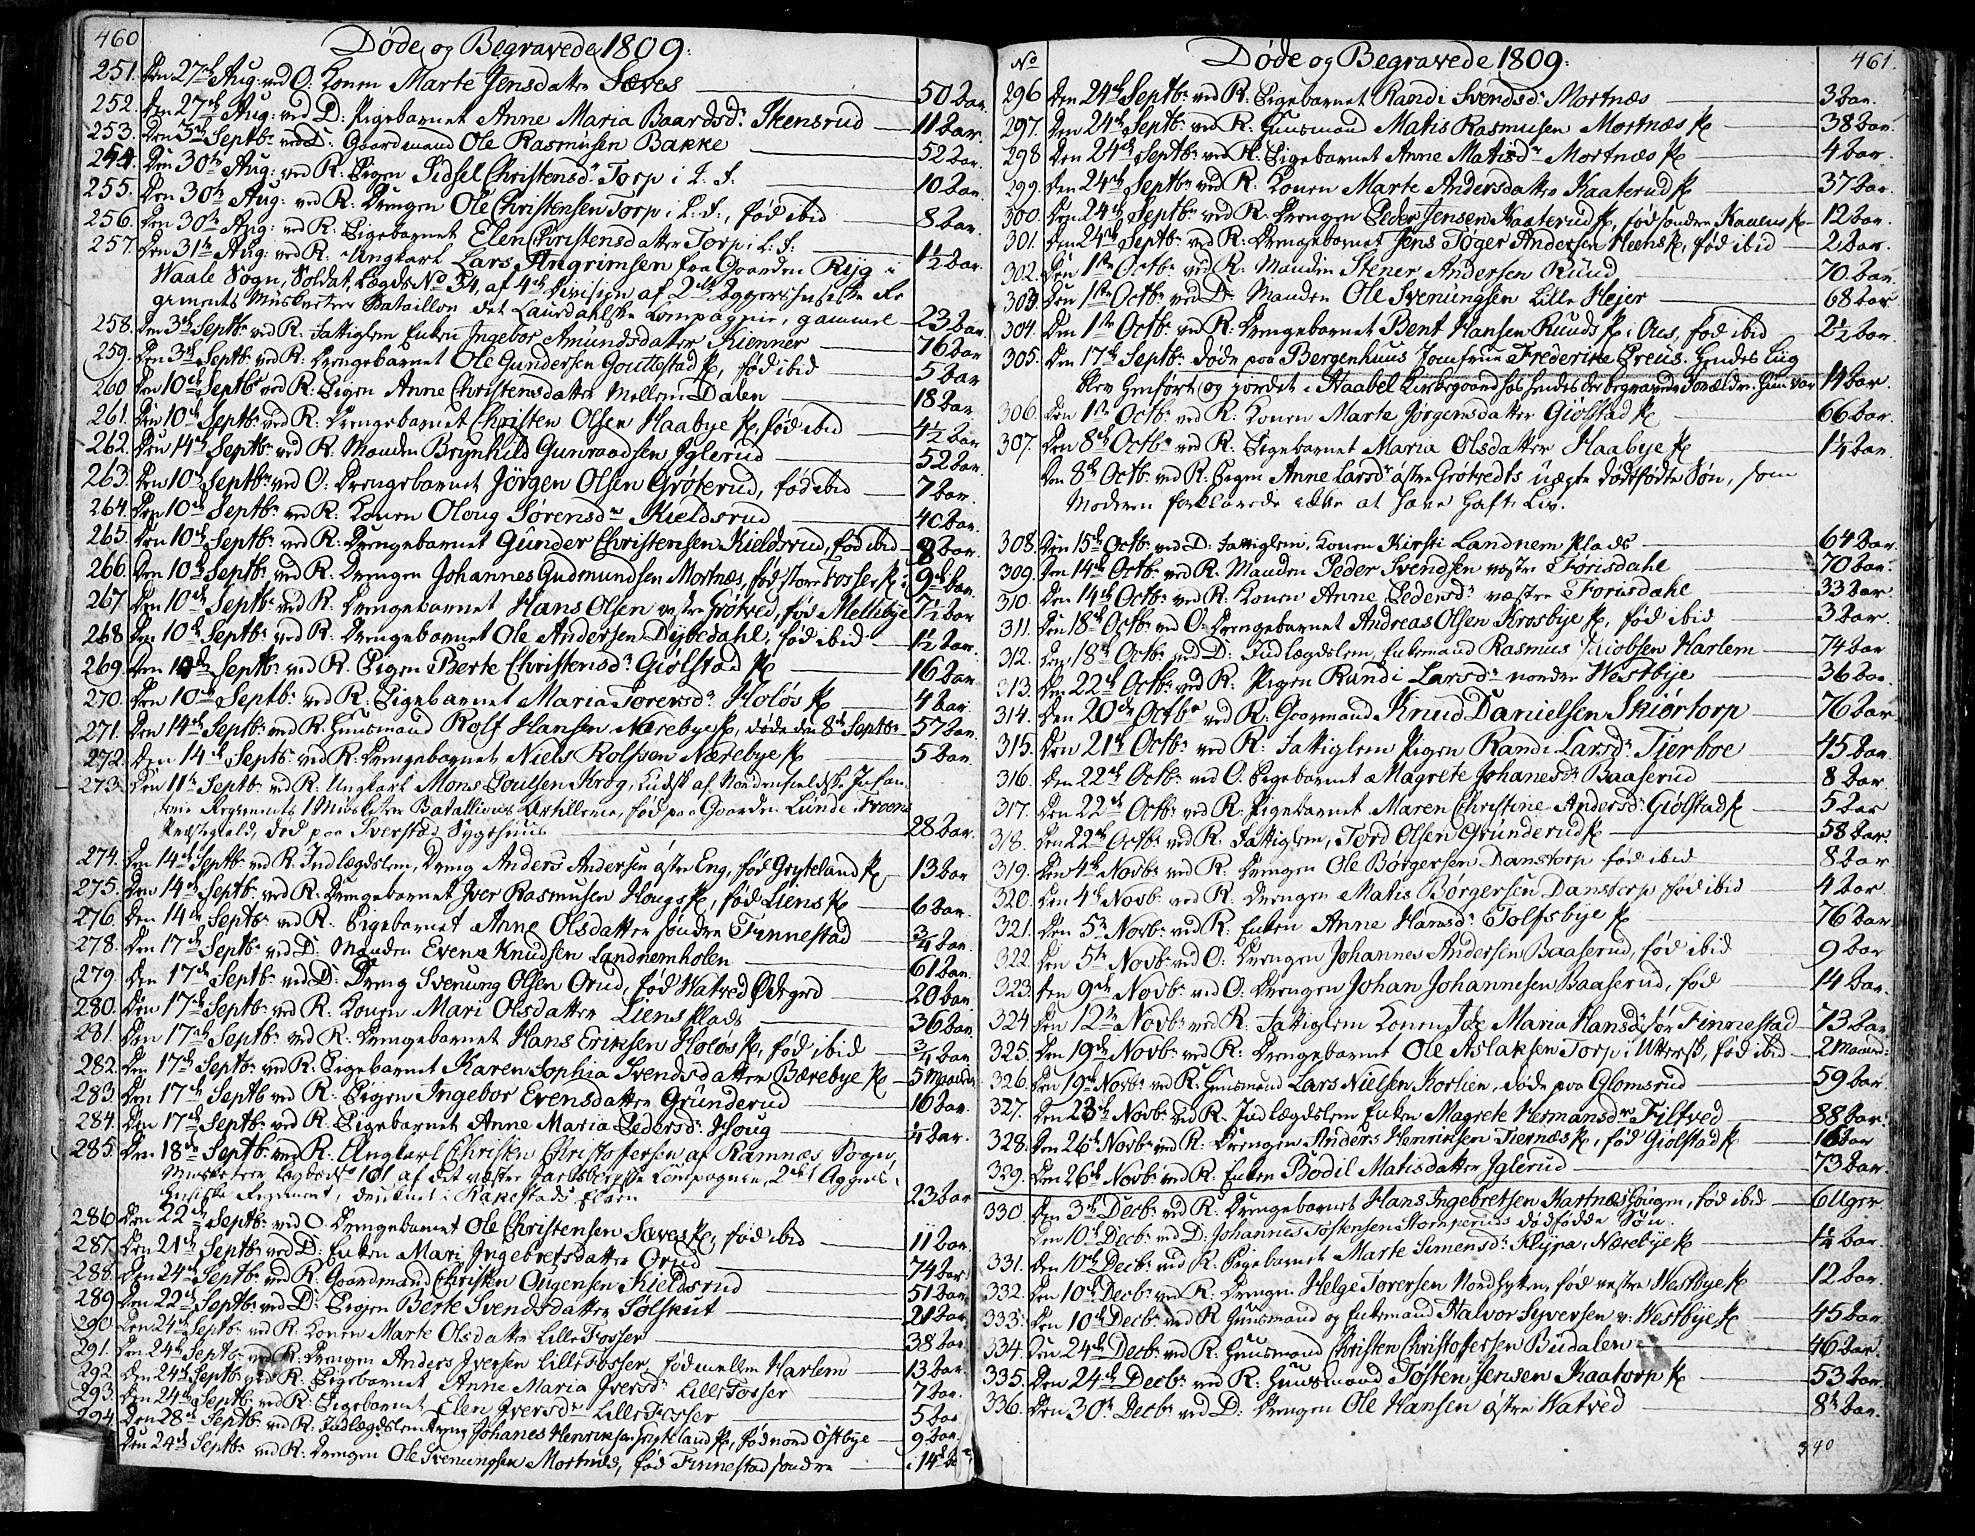 460
Døde og Begravede 1809.
251. Den 27de Aug: ved O: Konen Marte Jensdatter Sæves 50 Aar.
252. Den 27de Aug: ved D: Pigebarnet Anne Maria Baardsdr Skensrud 11 Aar
253. Den 3de Septbr ved D: Gaardmand Ole Rasmusen Bakke 52 Aar.
254. Den 30te Aug: ved R: Pigen Sidsel Christensdr Torp i L: S: 10 Aar.
255. Den 30te Aug: ved R: Drengen Ole Christensen Torp i L: S:, fød ibid 8 Aar.
256. Den 30te Aug: ved R: Pigebarnet Elen Christensdatter Torp i L: S: 1 1/2 Aar.
257. Den 31te Aug: ved R: Ungkarl Lars Angrimsen fra Gaarden Ryg i
Waale Sogn, Soldat, Lægds No 54, af 4de Division af 2det Aggershusiske Re
giments Musketeer Bataillon det Laurdahlske Compagnie, gammel 23 Aar.
258. Den 3de Septbr ved R: Fattiglem Enken Ingebor Amundsdatter Kienner 76 Aar
259. Den 3de Septbr ved R: Drengebarnet Ole Gundersen Gouttestad Pl, fød ibid 5 Aar
260 Den 10de Septbr ved R: Pigen Anne Christensdatter Mellem Dalen 18 Aar.
261. Den 10de Septbr ved R: Drengebarnet Christen Olsen Haabye Pl, fød ibid 4 1/2 Aar
262. Den 14de Septbr ved R: Manden Brynhild Gunraadsen Iglerud 52 Aar.
263. Den 10de Septbr ved O: Drengebarnet Jörgen Olsen Grøterud, fød ibid 7 Aar.
264. Den 10de Septbr ved R: Konen Oloug Sørensdr Kieldsrud 40 Aar.
265. Den 10de Septbr ved R: Drengebarnet Gunder Christensen Kieldsrud, fød ibid 8 Aar.
266. Den 10de Septbr ved R: Drengen Johannes Gudmundsen Mortnæs, fød store Fosser Pl i 9de Aar.
267 Den 10de Septbr ved R: Drengebarnet Hans Olsen vestre Grøtved, fød Mellebye 7 1/2 Aar
268 Den 10de Septbr ved R: Drengebarnet Ole Andersen Dybedahl, fød ibid 1 1/2 Aar.
269. Den 10de Septbr ved R: Pigen Berte Christensdr Giølstad Pl 16 Aar.
270. Den 10de Septbr ved R: Pigebarnet Maria Torersdr Holøs Pl 4 Aar
271. Den 14de Septbr ved R: Huusmand Rolf Hansen Nærebye Pl, døde den 8de Septbr 57 Aar.
272. Den 14de Septbr ved R: Drengebarnet Niels Rolfsen Nærebye Pl 5 Aar.
273. Den 11te Septbr ved R: Ungkarl Mons Poulsen Krog, Kudsk af Nordenfieldske Infan
terie Regiments 1 Musketer Batallions Artillerie, fød paa Gaarden Lunde i Froens
Præstegield, død paa Tverstad Sygehuus 28 Aar.
274. Den 14de Septbr ved R: Indlægdslem, Dreng Anders Andersen østre Eng, fød Gryteland Pl 13 Aar
275. Den 14de Septbr ved R: Drengebarnet Iver Rasmusen Hougs Pl, fød Liens Pl 6 Aar.
276. Den 14de Septbr ved R: Pigebarnet Anne Olsdatter søndre Finnestad 3/4 Aar.
278. Den 17de Septbr ved D: Manden Even Knudsen Landnemholen 61 Aar.
279. Den 17de Septbr ved D: Dreng Svenung Olsen Orud, fød Watved Ødegrd 20 Aar
280. Den 17de Septbr ved R: Konen Mari Olsdatter Liens Plads 36 Aar.
281. Den 17de Septbr ved R: Drengebarnet Hans Eriksen Holøs Pl, fød ibid 3/4 Aar.
282. Den 17de Septbr ved R: Pigebarnet Karen Sophia Svendsdatter Bærebye Pl 5 Maaneder
283. Den 17de Septbr ved R: Pigen Ingebor Evensdatter Gründerud 16 Aar.
284. Den 17de Septbr ved R: Pigebarnet Anne Maria Pedersdr Houg 1/4 Aar.
285. Den 18de Septbr ved R: Ungkarl Christen Christoffersen af Ramnæs Sogn,
Musketeer, Lægds No 101 af det vestre Jarlsbergske Compagnie, 2det Aggers-
husiske Regiment, druknet i Rakestads Elven 23 Aar
286 Den 22de Septbr ved O. Drengebarnet Ole Christensen Sæves Pl, fød ibid 11 Aar.
287. Den 21de Septbr ved D: Enken Mari Ingebretsdatter Orud 74 Aar.
288. Den 24de Septbr ved R: Gaardmand Christen Ongensen Kieldsrud 51 Aar.
289 Den 22de Septbr ved D: Pigen Berte Svendsdatter Solskut 21 Aar
290 Den 24de Septbr ved R: Konen Marte Olsdatter Lille Fosser 38 Aar.
291. Den 24de Septbr ved R: Drengen Anders Iversen Lille Fosser, fød mellem Harlem 13 Aar.
292. Den 24de Septbr ved R: Pigebarnet Anne Maria Iversdr Lille Fosser 7 Aar.
293. Den 24de Septbr ved R: Pigebarnet Elen Iversdr Lille Fosser 5 Aar
294. Den 28de Septbr ved R: Indlægdslem Dreng Johanes Henriksen Gryteland Pl, fød nord Østbye 9 Aar.
Den 24de Septbr ved R: Drengen Ole Svenungsen Mortnæs, fød Finnestad søndre i 14de
No Døde og Begravede 1809. 461.
296 Den 24de Septbr ved R: Pigebarnet Randi Svendsdr Mortnæs 3 Aar.
297. Den 24de Septbr ved R: Huusmand Matis Rasmusen Mortnæs Pl 38 Aar.
298 Den 24de Septbr ved R: Pigebarnet Anne Matisdr Mortnæs Pl 4 Aar.
299. Den 24de Septbr ved R: Konen Marte Andersdatter Kaaterud Pl 37 Aar.
300. Den 24de Septbr ved R: Drengen Peder Jensen Kaaterud Pl, fød søndre Kauens Pl 12 Aar.
301. Den 24de Septbr ved R: Drengebarnet Jens Töger Andersen Heens Pl, fød ibid 2 Aar.
302. Den 1ste Octbr ved R: Manden Stener Andersen Rüud 70 Aar.
303 Den 1ste Octbr ved D: Manden Ole Svenungsen Lille Hejer 68 Aar
304. Den 1ste Octbr ved R: Drengebarnet Bent Hansen Ruuds Pl i Aas, fød ibid 2 1/2 Aar.
305. Den 17de Septbr døde paa Bergenhuus Jomfrue Frederike Preus. Hendes Liig
blev henført og jordet i Haabel Kirkegaard hos hendes der begravede Forældre. Hun var 14 Aar.
306. Den 1ste Octbr ved R: Konen Marte Jörgensdatter Giölstad Pl 66 Aar.
307. Den 8de Octbr ved R: Pigebarnet Maria Olsdatter Haabye Pl 1 1/4 Aar.
Den 8de Octbr ved R: Pigen Anne Larsdr østre Grøtvedts uægte dødfødte Søn, som
Moderen forklarede ikke at have haft Liv.
308. Den 15de Octbr ved D: Fattiglem, Konen Kirsti Landnem Plads 64 Aar.
309. Den 14de Octbr ved R: Manden Peder Svendsen vestre Forisdahl 70 Aar.
310. Den 14de Octbr ved R: Konen Anne Pedersdr vestre Forisdahl 33 Aar
311. Den 18de Octbr ved O: Drengebarnet Andreas Olsen Krosbye Pl, fød ibid 3 Aar.
312. Den 18de Octbr ved D: Indlægdslem, Enkemand Rasmus Jacobsen Harlem 74 Aar
313. Den 22de Octbr ved R: Pigen Randi Larsdr nordre Westbye 36 Aar.
314. Den 20de Octbr ved R: Gaarmand Knud Danielsen Skiørtorp 76 Aar
315. Den 21de Octbr ved R: Fattiglem Pigen Randi Larsdr Tierboe 45 Aar.
316. Den 22de Octbr ved O: Pigebarnet Magrete Johanesdr Baaserud 8 Aar.
317. Den 22de Octbr ved R: Pigebarnet Maren Christine Andersdr Giølstad Pl 5 Aar
318. Den 22de Octbr ved R: Fattiglem, Tord Olsen Gründerud Pl 58 Aar.
319. Den 4de Novbr ved R: Drengen Ole Börgersen Danstorp fød ibid 8 Aar
320. Den 4de Novbr ved R: Drengen Matis Börgersen Danstorp, fød ibid 4 Aar.
321. Den 5te Novbr ved R: Enken Anne Hansdr Tolfsbye Pl 76 Aar
322. Den 5te Novbr ved O: Drengen Johannes Andersen Baaserud, fød ibid 9 Aar
323. Den 9de Novbr ved O: Drengen Johan Johannesen Baaserud, fød 14 Aar.
324 Den 12te Novbr ved R: Fattiglem Konen Ide Maria Hansdr sør Finnestad 73 Aar
325. Den 19de Novbr ved R: Drengebarnet Ole Aslaksen Torp i Uttersk, fød ibid 2 Maaned:
326. Den 19de Novbr ved R: Huusmand Lars Nielsen Korslien, døde paa Glomsrud 59 Aar
327. Den 23de Novbr ved R. Indlægdslem Enken Magrete Hermansdr Filtved 88 Aar.
328. Den 26de Novbr ved R: Drengen Anders Henriksen Tiernæs Pl, fød Giølstad Pl 16 Aar
329. Den 26de Novbr ved R: Enken Bodil Matisdatter Iglerud 73 Aar.
330 Den 3de Decbr ved R: Drengebarnet Hans Ingebretsen Hartnæs Eugen, fød ibid 6 Uger
Den 10de Decbr ved D: Johannes Tostensen Stomperuds dödfødde Søn.
331. Den 10de Decbr ved R: Pigebarnet Marte Simensdr Klypa, Nærebye Pl 1/4 Aar.
332. Den 10de Decbr ved R: Drengen Helge Torersen Nordhytten, fød vestre Westbye Pl 12 Aar.
333. Den 10de Decbr ved R Huusmand og Enkemand Halvor Syversen v: Westbye Pl 45 Aar.
334. Den 24de Decbr ved R: Huusmand Christen Christoffersen Büdalen 46 Aar.
335. Den 24de Decbr ved R: Huusmand Tosten Jensen Kaatorp Pl 53 Aar.
336. Den 30te Decbr ved D: Drengen Ole Hansen østre Watved 8te Aar.
340